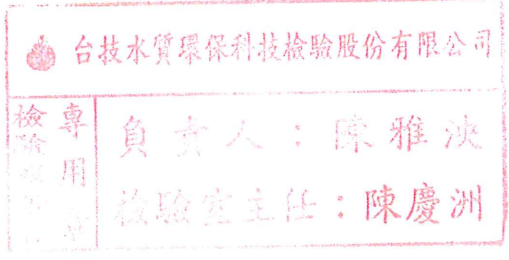 台技水質環保科技檢驗股份有限公司
專用章
檢驗
負責人：陳雅
檢驗室主任：陳慶洲